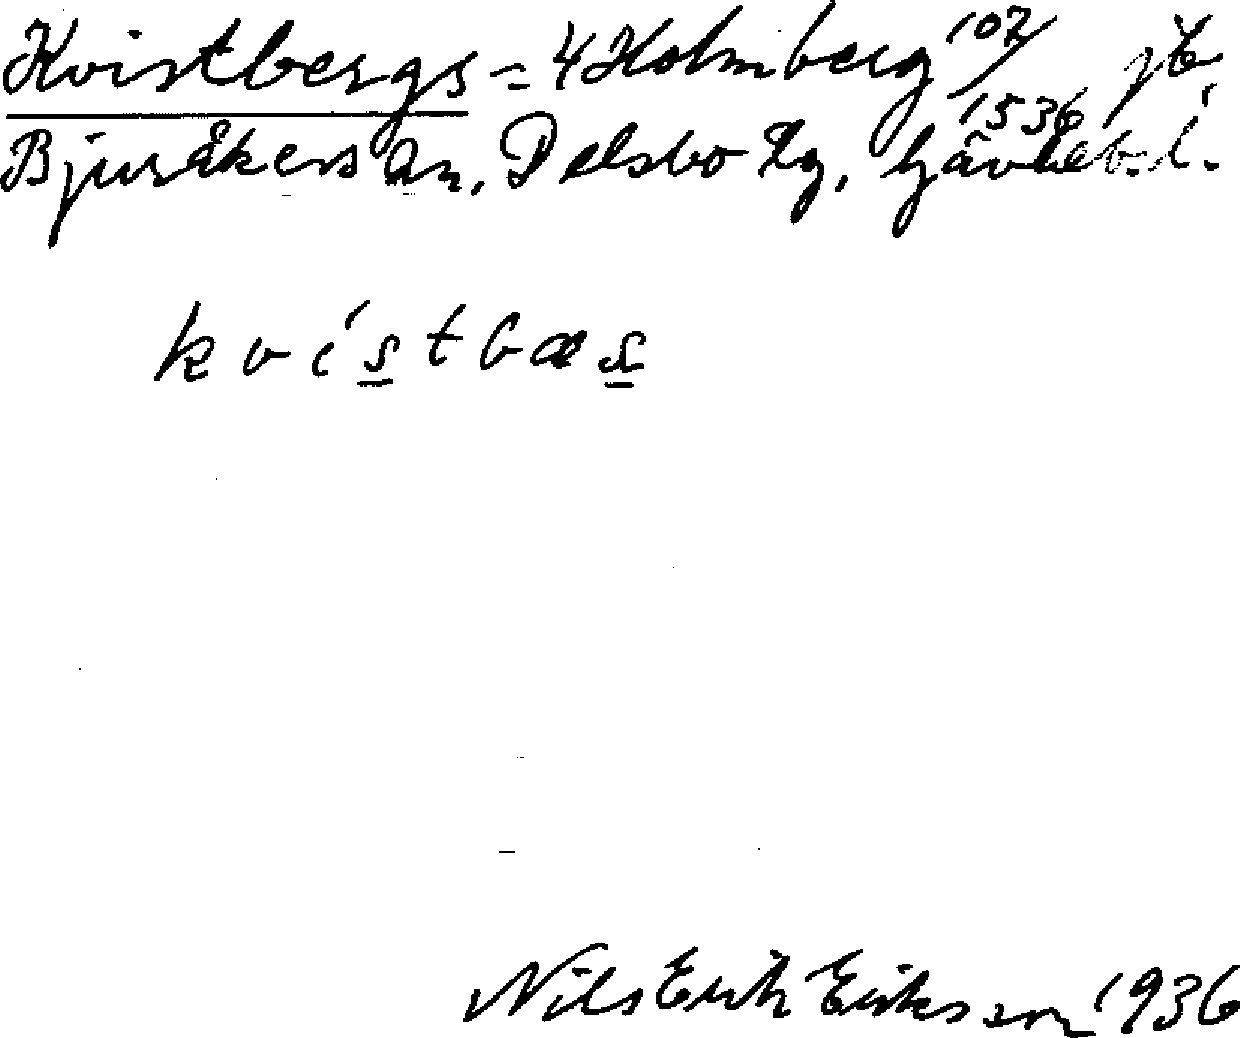 Kvistbergs = 4 Holmberg 107/1536 jb
Bjuråkers sn, Delsbo tg, Gävleb. l.
kvístbæs
Nils Erik Eriksson 1936